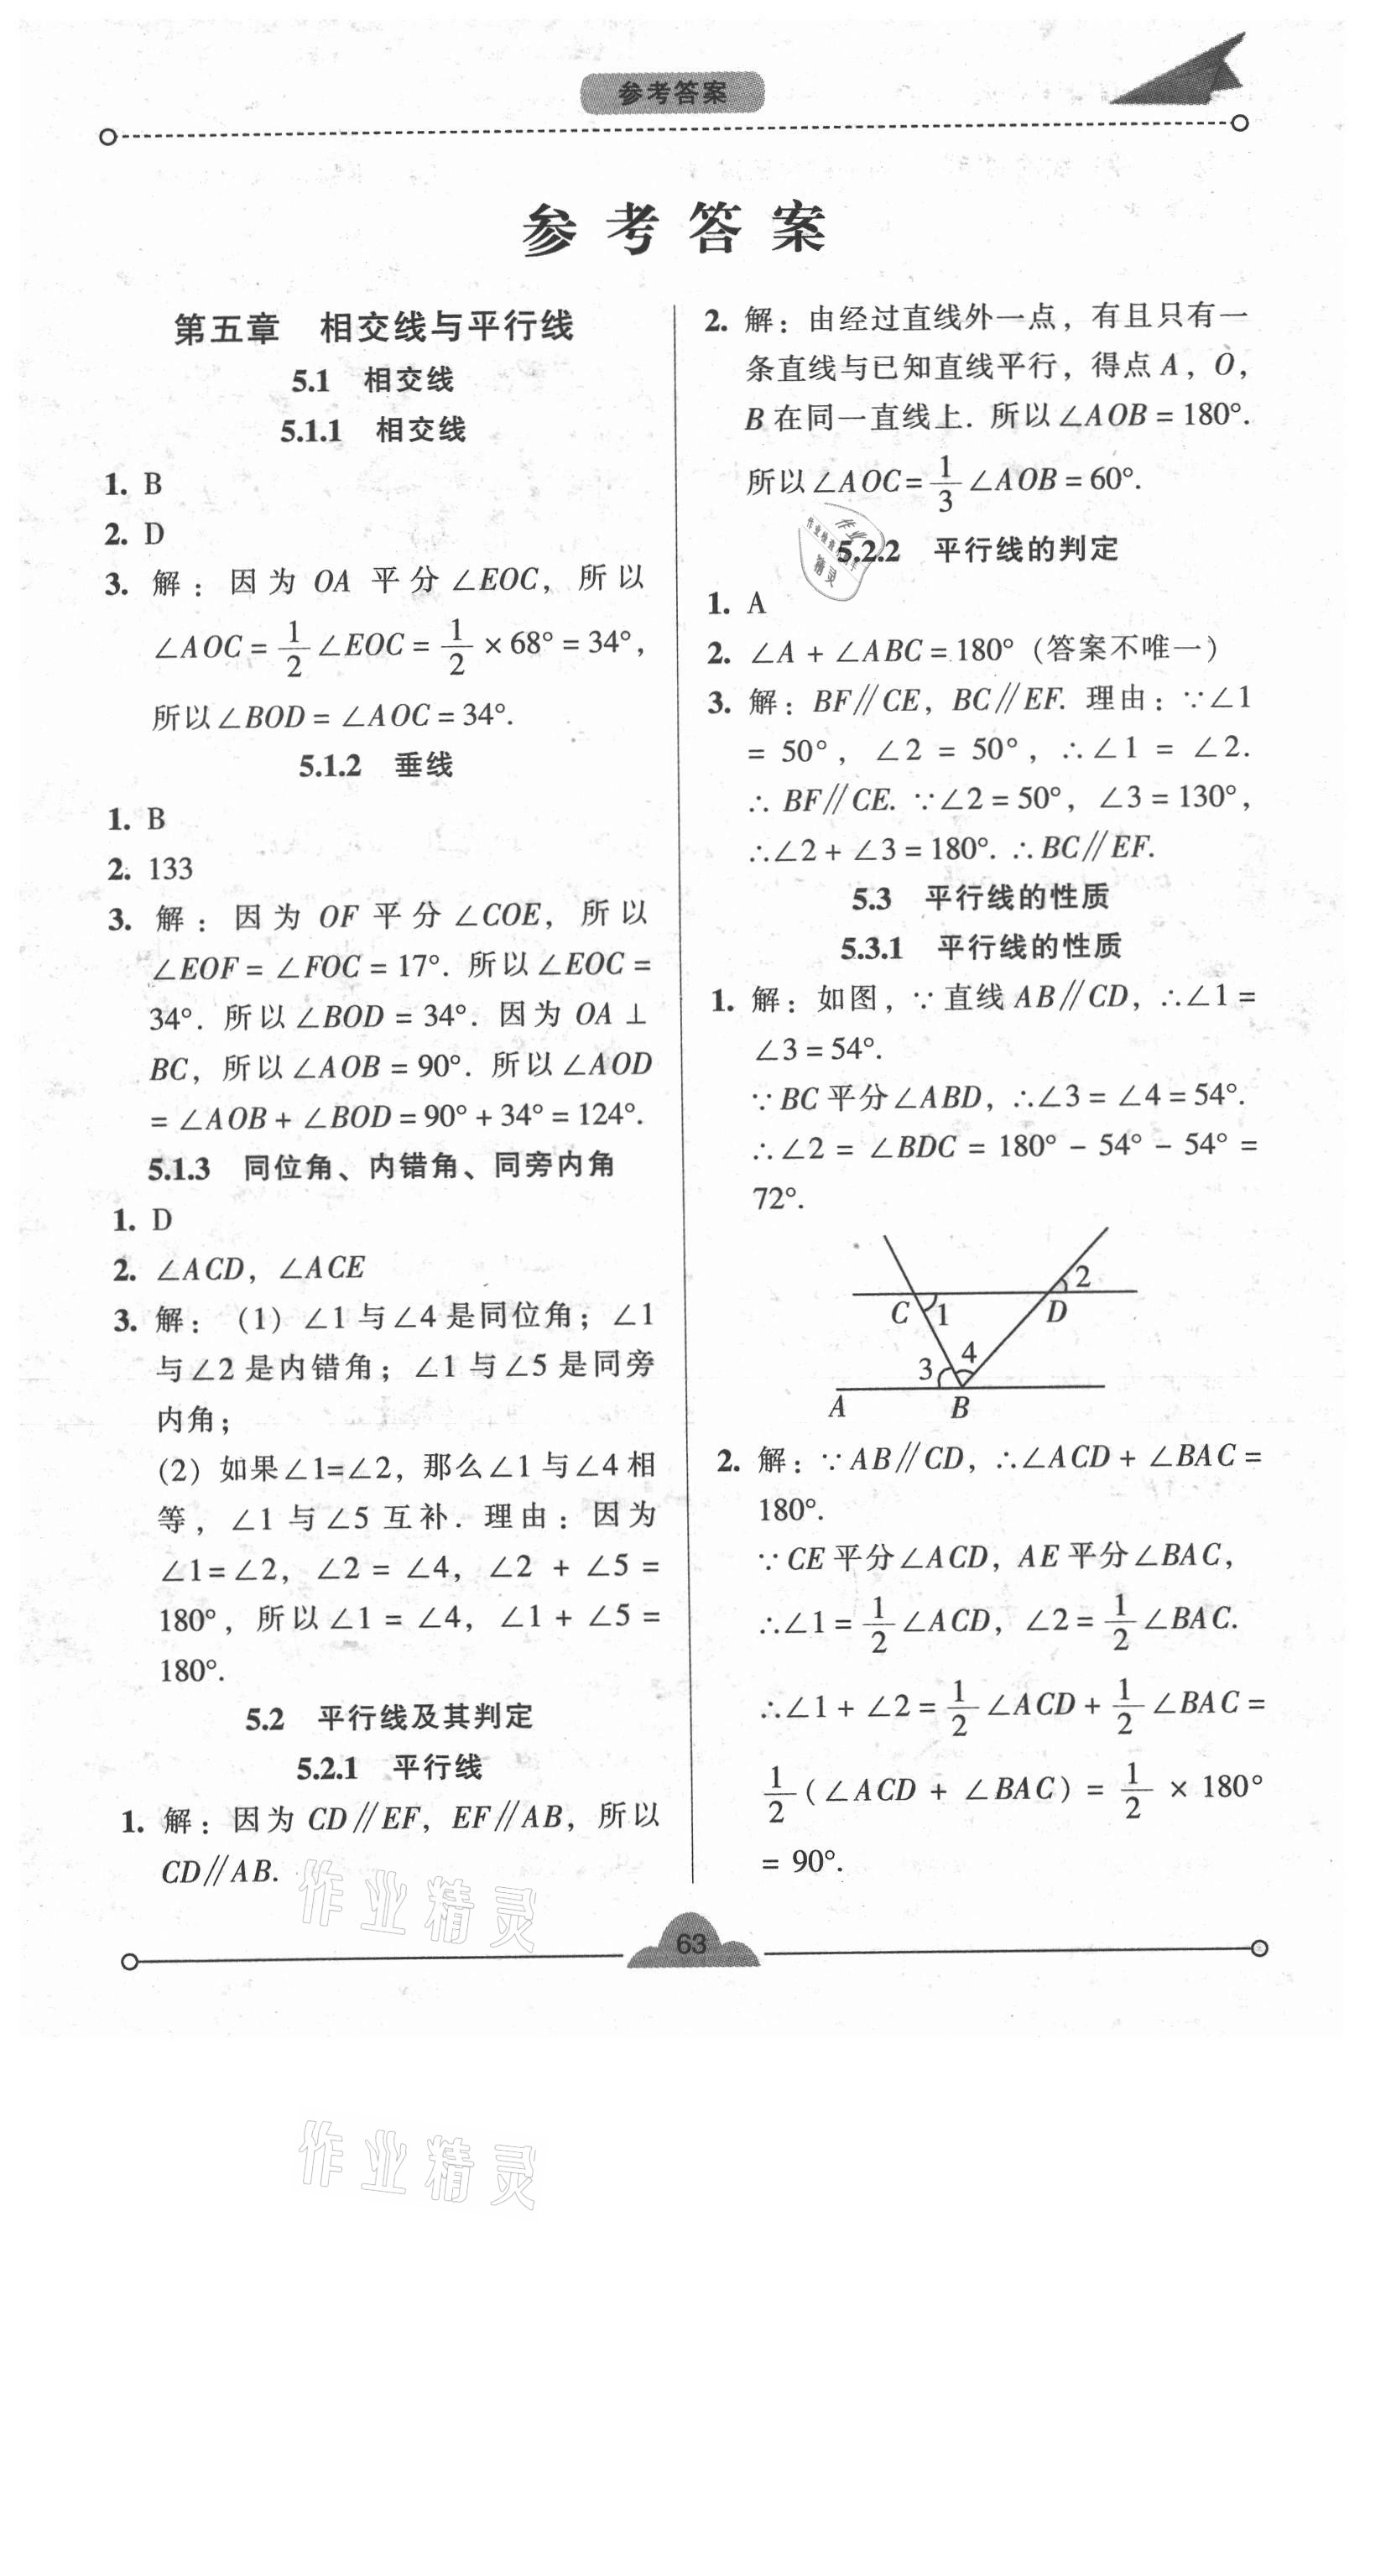 参考答案
参考答案
第五章 相交线与平行线
5.1 相交线
5.1.1 相交线
1. B
2. D
3. 解：因为 OA 平分∠EOC，所以
∠AOC = 1/2 ∠EOC = 1/2 × 68° = 34°，
所以∠BOD = ∠AOC = 34°.
5.1.2 垂线
1. B
2. 133
3. 解：因为 OF 平分∠COE，所以
∠EOF = ∠FOC = 17°. 所以∠EOC =
34°. 所以∠BOD = 34°. 因为 OA ⊥
BC，所以∠AOB = 90°. 所以∠AOD
= ∠AOB + ∠BOD = 90° + 34° = 124°.
5.1.3 同位角、内错角、同旁内角
1. D
2. ∠ACD，∠ACE
3. 解：（1）∠1 与∠4 是同位角；∠1
与∠2 是内错角；∠1 与∠5 是同旁
内角；
(2) 如果∠1=∠2，那么∠1 与∠4 相
等，∠1 与∠5 互补. 理由：因为
∠1=∠2，∠2 = ∠4，∠2 + ∠5 =
180°，所以∠1 = ∠4，∠1 + ∠5 =
180°.
5.2 平行线及其判定
5.2.1 平行线
1. 解：因为 CD∥EF，EF∥AB，所以
CD∥AB.
2. 解：由经过直线外一点，有且只有一
条直线与已知直线平行，得点 A，O，
B 在同一直线上. 所以∠AOB = 180°.
所以∠AOC = 1/3 ∠AOB = 60°.
5.2.2 平行线的判定
1. A
2. ∠A + ∠ABC = 180°（答案不唯一）
3. 解：BF∥CE，BC∥EF. 理由：∵∠1
= 50°，∠2 = 50°，∴∠1 = ∠2.
∴ BF∥CE. ∵∠2 = 50°，∠3 = 130°，
∴∠2 + ∠3 = 180°. ∴BC∥EF.
5.3 平行线的性质
5.3.1 平行线的性质
1. 解：如图，∵直线 AB∥CD，∴∠1 =
∠3 = 54°.
∵BC 平分∠ABD，∴∠3 = ∠4 = 54°.
∴∠2 = ∠BDC = 180° − 54° − 54° =
72°.
2
C 1 D
3 4
A B
2. 解：∵AB∥CD，∴∠ACD + ∠BAC =
180°.
∵CE 平分∠ACD，AE 平分∠BAC，
∴∠1 = 1/2 ∠ACD，∠2 = 1/2 ∠BAC.
∴∠1 + ∠2 = 1/2 ∠ACD + 1/2 ∠BAC =
1/2 (∠ACD + ∠BAC) = 1/2 × 180°
= 90°.
63
作业精灵
作业精灵